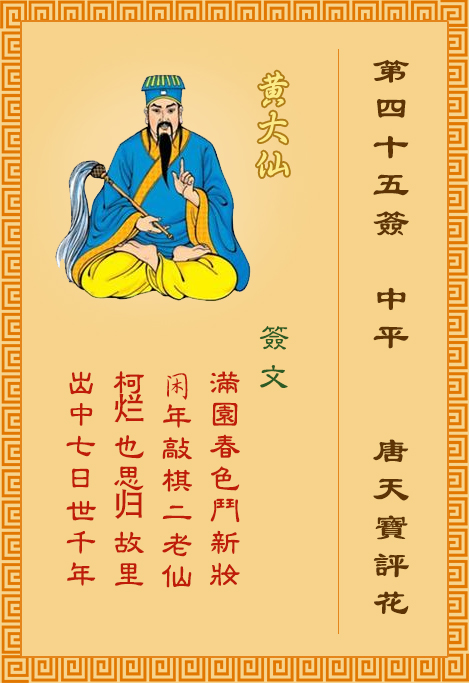 第四十五簽 中平 唐天寶評花
黄大仙
簽文
滿園春色鬥新妝
闲年敲棋二老仙
柯烂也思归故里
出中七日世千年